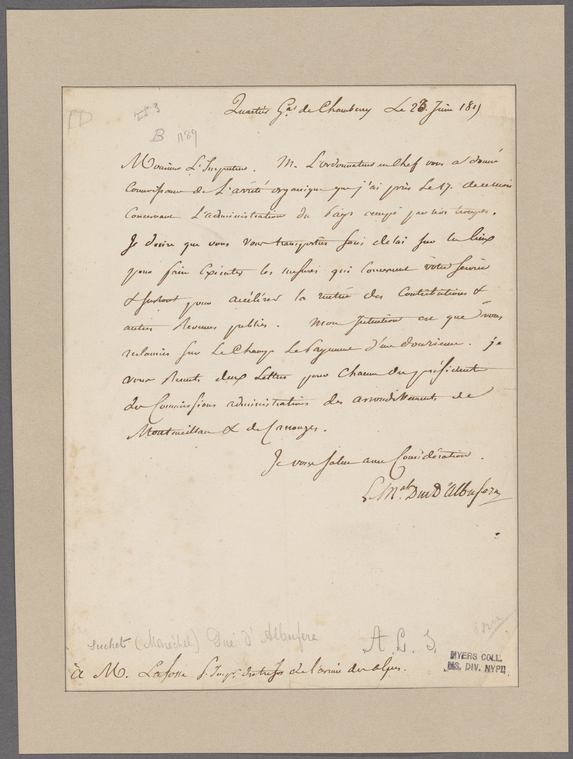 Quartier Gal de Chambery Le 23 Juin 1815
Monsieur L'Inspecteur. M. L'ordonnateur en chef vous a donné
Connaissance de L'arrêté organique que j'ai pris Le 17. de ce mois
Concernant L'administration du Pays occupé par nos troupes.
Je desire que vous vous transportiez sans delai sur les lieux
pour faire Exécuter les mesures qui concernent votre service
& surtout pour accélérer la rentrée des Contributions &
autres Revenus publics. Mon Intention est que vous
reclamiez sur Le Champ Le Payement d'un douzieme. je
vous Remets deux Lettres pour Chacun des président
des Commissions administratives des arrondissements de
Montmeillan & de Carouges.
Je vous salue avec Considération.
Le Mal Duc D'Albufera
Suchet (Maréchal) Duc d'Albufera
A. L. S.
à M. Lafosse de l'armée des alpes.
MYERS COLL.
MS. DIV. NYPL
B 1189